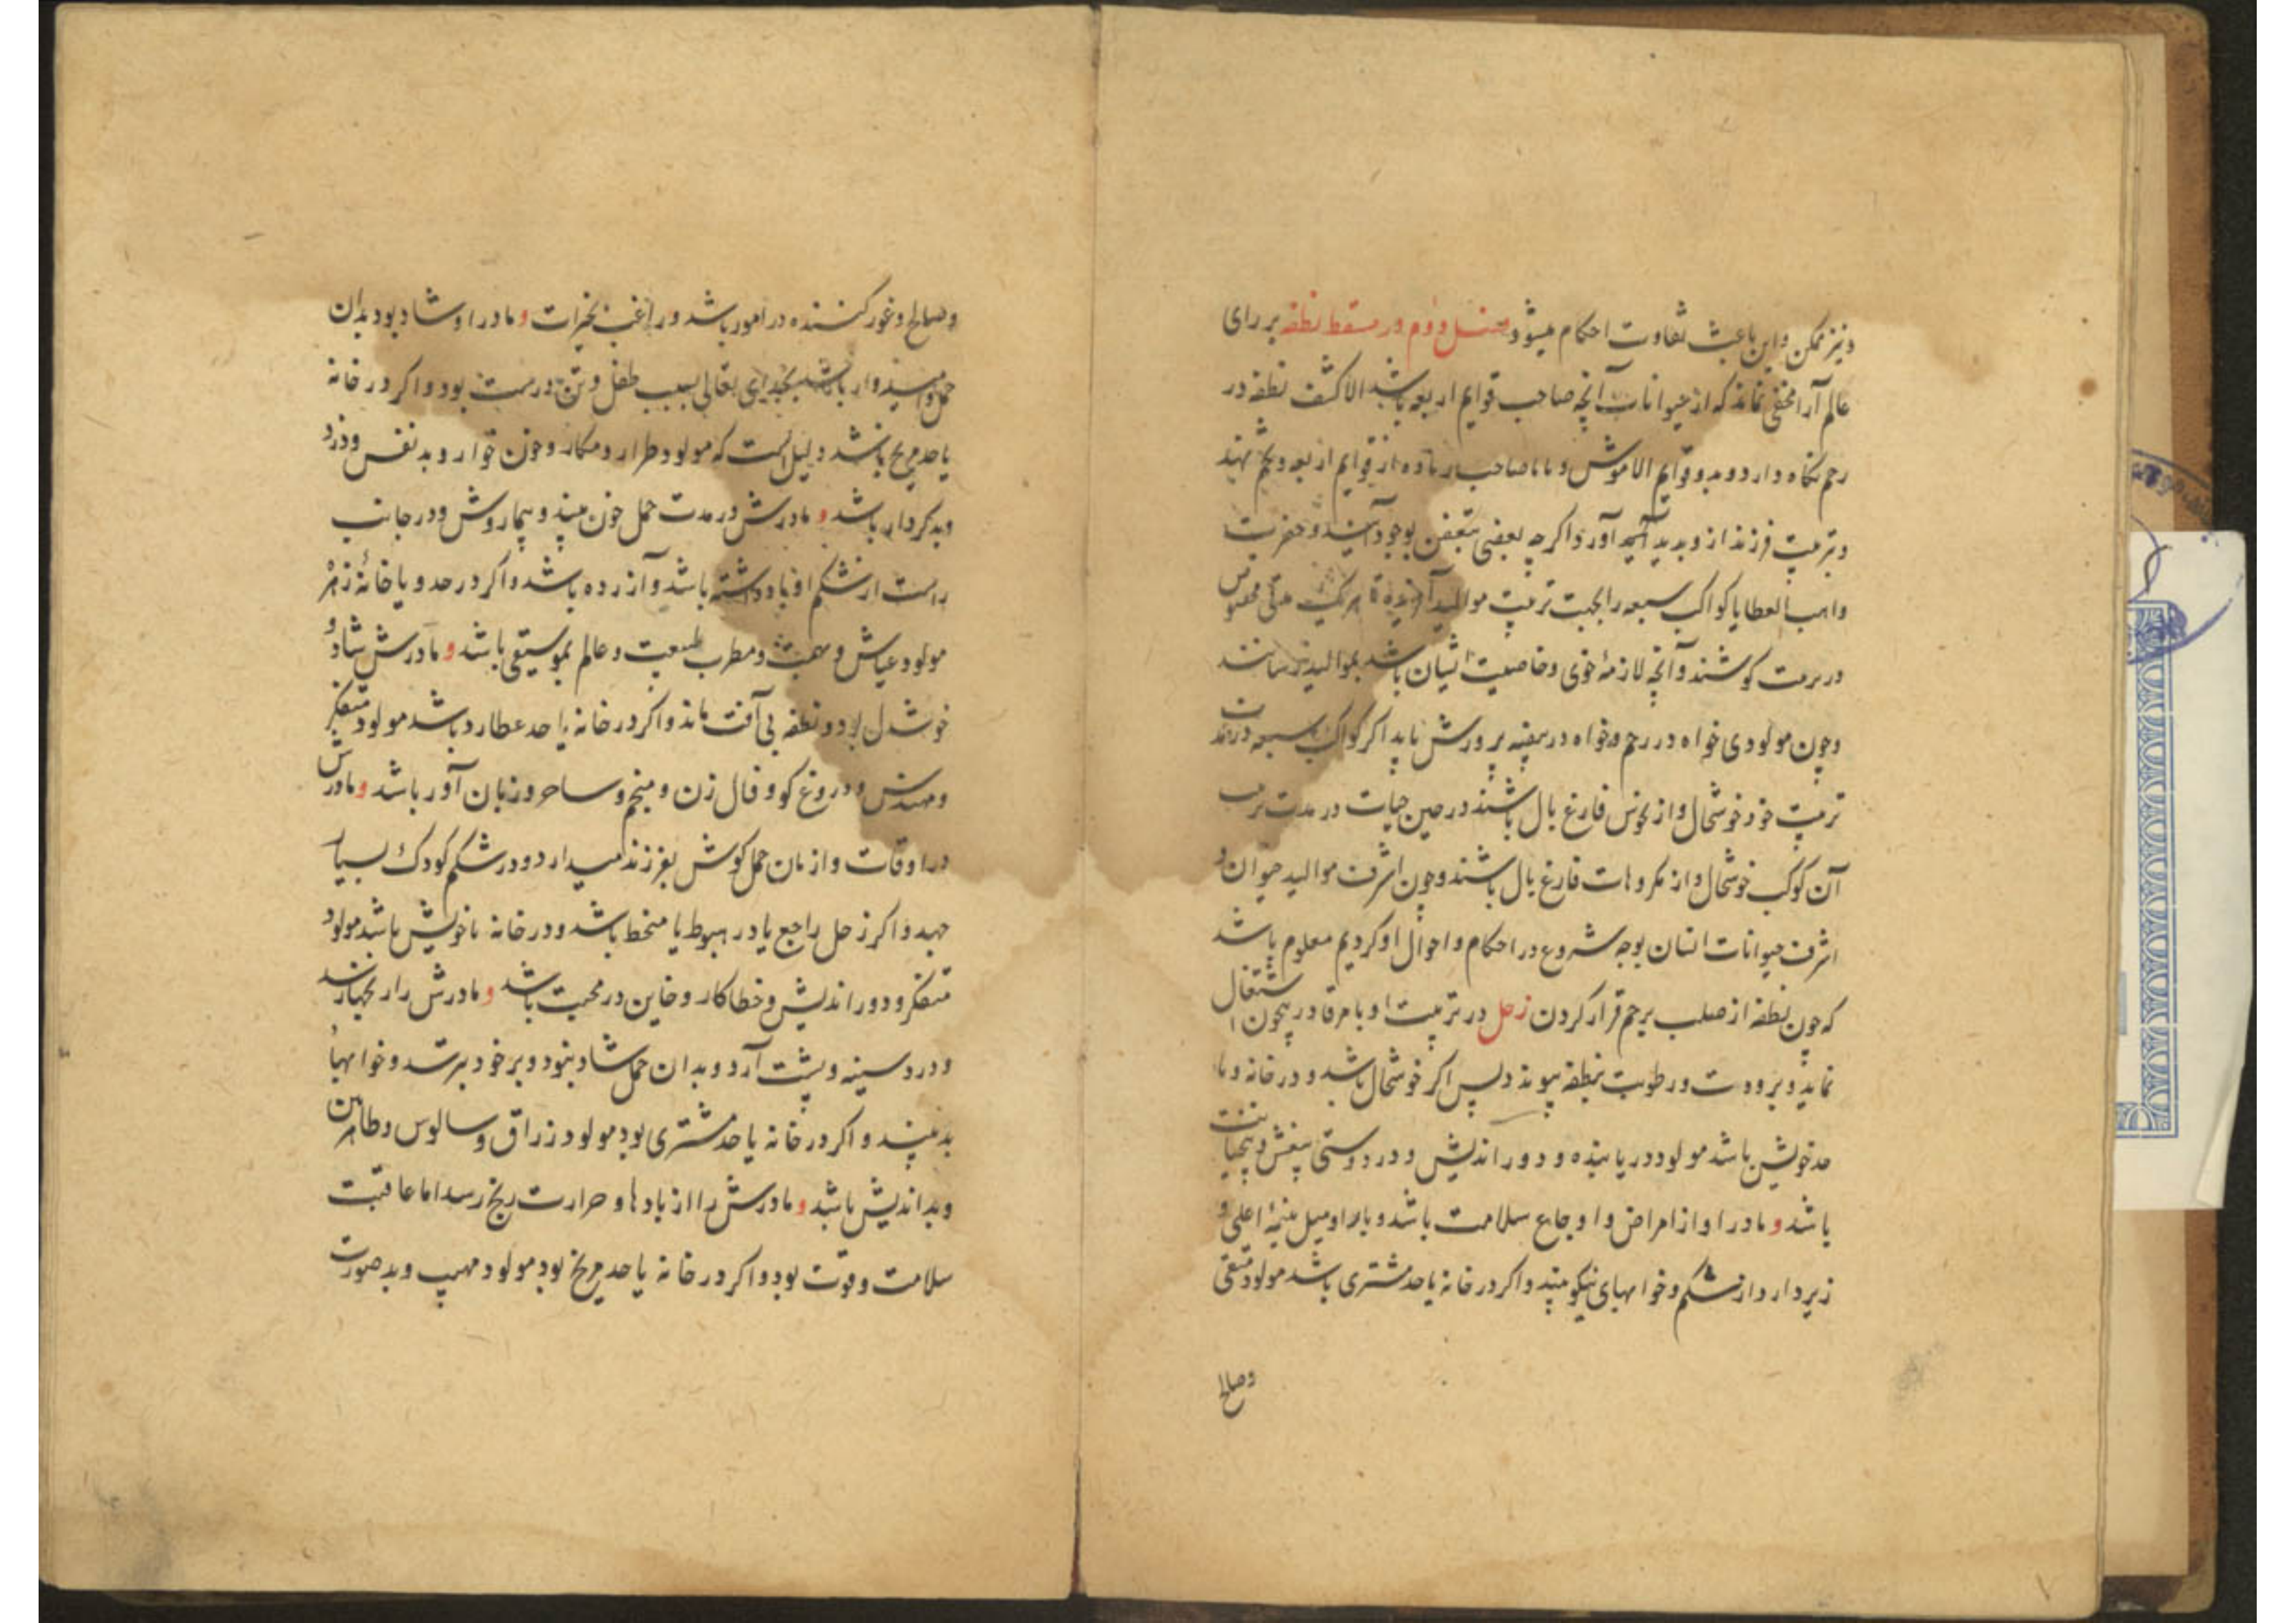 و نیز ممکن و این باعث تفاوت احکام میشود فصل دوم در مسقط نطفه بر رای
عالم آرا مخفی نماند که از حیوانات آنچه صاحب قوایم اربعه باشد الا کشف نطفه در
رحم نگاه دارد و بدو قوایم الا موش و اما صاحب از قوایم اربعه و تخم نهند
و تربیت فرزند از و پدید آورد و اگر چه بعضی بتعفن بوجود آیند و حضرت
واهب العطایا کواکب سبعه را بجهت تربیت موالید آفریده تا هر یک مدتی مخصوص
در تربیت کوشند و آنچه لازمهٔ خوی و خاصیت ایشان باشد بموالید رسانند
و چون مولودی خواه در رحم و خواه در بیضه پرورش یابد اگر کواکب سبعه در مدت
تربیت خود خوشحال و از نحوس فارغ بال باشند در حین حیات در مدت تربیت
آن کوکب خوشحال و از مکروهات فارغ بال باشند و چون اشرف موالید حیوان و
اشرف حیوانات انسان بوجه شروع در احکام و احوال او کردیم معلوم باشد
که چون نطفه از صلب برحم قرار کردن زحل در تربیت او با مر قادر بیچون اشتغال
نماید و برودت و رطوبت بنطفه پیوندد پس اگر خوشحال باشد و در خانه و یا
حد خویش باشد مولود دریابنده و دوراندیش و در دوستی بیغش و بیخیانت
باشد و مادر او از امراض و اوجاع سلامت باشد و بار او میل بنیمهٔ اعلی و
زیر دارد از شکم و خوابهای نیکو بیند و اگر در خانه یا حد مشتری باشد مولود متقی
و صالح
و صالح و غور کننده در امور باشد و راغب بخیرات و مادر او شاد بود بدان
حمل و امیدوار باشد بخدای تعالی بسبب طفل و تن درست بود و اگر در خانه
یا حد مریخ باشد دلیل است که مولود طرار و مکار و خون خوار و بد نفس و دزد
و بد کردار باشد و مادرش در مدت حمل خون بیند و بیمار و ش و در جانب
راست از شکم او باد داشته باشد و آزرده باشد و اگر در حد و یا خانهٔ زهره
مولود عیاش و و مطرب طبیعت و عالم بموسیقی باشد و مادرش شاد و
خوشدل بود و نطفه بی آفت ماند و اگر در خانه یا حد عطارد باشد مولود متفکر
و مهندس و دروغ گو و فال زن و منجم و ساحر و زبان آور باشد و مادرش
در اوقات و ازمان حمل گوش بفرزند میدارد و در شکم کودک بسیار
جهد و اگر زحل راجع یا در هبوط یا منحط باشد و در خانه ناخویش باشد مولود
متفکر و دوراندیش و خطاکار و خاین در محبت باشد و مادرش را رنجها رسد
و درد سینه و پشت آرد و بدان حمل شاد نبود و بر خود بترسد و خوابهاء
بد بیند و اگر در خانه یا حد مشتری بود مولود زراق و سالوس و ظاهربین
و بد اندیش باشد و مادرش را از بادها و حرارت رنج رسد اما عاقبت
سلامت و قوت بود و اگر در خانه یا حد مریخ بود مولود مهیب و بد صورت